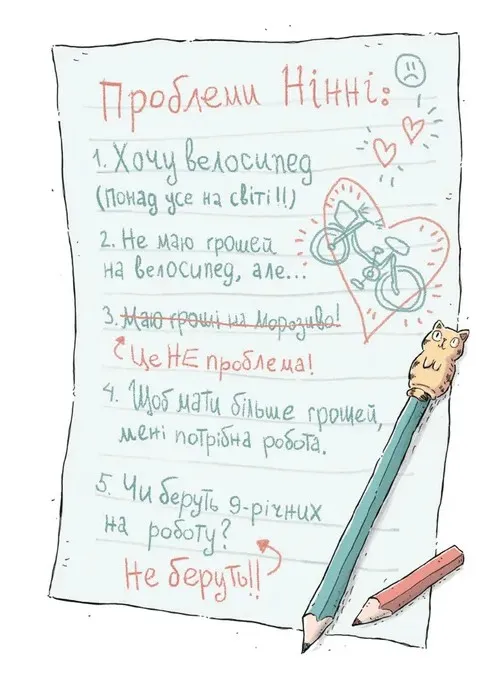 Проблеми Нінні:
1. Хочу велосипед
(Понад усе на світі!!)
2. Не маю грошей
на велосипед, але...
3. Маю гроші на морозиво!
Це НЕ проблема!
4. Щоб мати більше грошей,
мені потрібна робота.
5. Чи беруть 9-річних
на роботу?
Не беруть!!